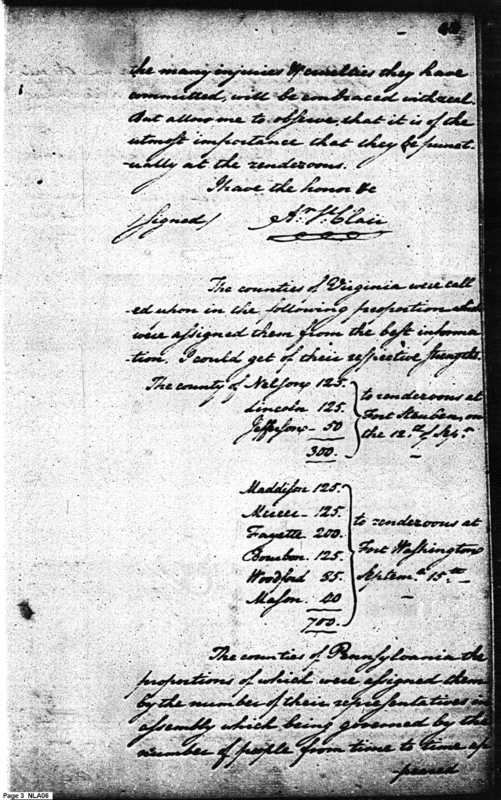 the many injuries & cruelties they have
committed, will be embraced with zeal.
But allow me to observe, that it is of the
utmost importance that they be punct-
-ually at the rendezvous.
I have the honor &c
(signed) Ar. St. Clair
The counties of Virginia were call
-ed upon in the following proportion which
were assigned them from the best informa
-tion. I could get of their respective strengths.
The county of Nelson 125.
Lincoln 125.
Jefferson - 50
300.
to rendezvous at
Fort Steuben, on
the 12th of Sepr.
Maddison 125.
Mercer - 125.
Fayette 200.
Bourbon 125.
Woodford 55.
Mason 40
700.
to rendezvous at
Fort Washington
Septemr 15th
The counties of Pennsylvania the
proportions of which were assigned them
by the number of their representatives in
assembly which being governed by the
number of people from time to time ap
peared
Page 3 NLA06